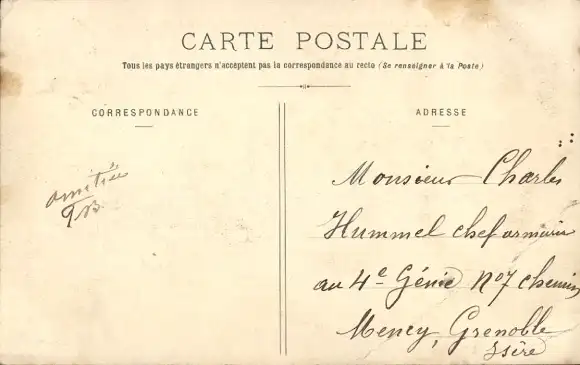 CARTE POSTALE
Tous les pays étrangers n'acceptent pas la correspondance au recto (Se renseigner à la Poste)
CORRESPONDANCE
ADRESSE
amitiée
Monsieur Charles
Hummel chef armurier
au 4e Génie No 7 chemin
Mency, Grenoble
Isère